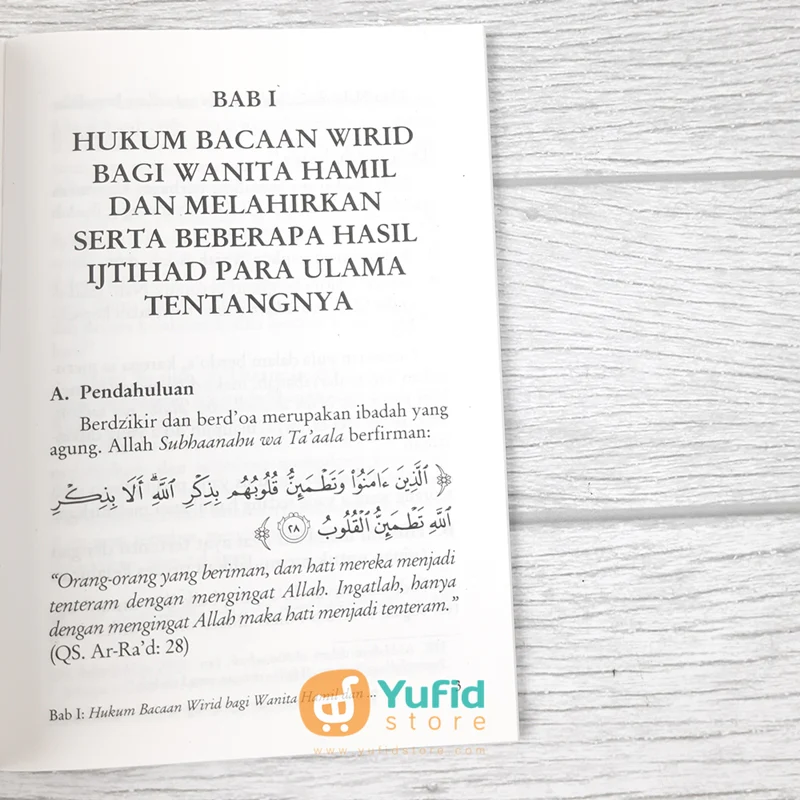 BAB I
HUKUM BACAAN WIRID
BAGI WANITA HAMIL
DAN MELAHIRKAN
SERTA BEBERAPA HASIL
IJTIHAD PARA ULAMA
TENTANGNYA
A. Pendahuluan
Berdzikir dan berd’oa merupakan ibadah yang
agung. Allah Subhaanahu wa Ta’aala berfirman:
﴿ الَّذِينَ ءَامَنُوا۟ وَتَطْمَئِنُّ قُلُوبُهُم بِذِكْرِ اللَّهِ ۗ أَلَا بِذِكْرِ
اللَّهِ تَطْمَئِنُّ الْقُلُوبُ ٢٨ ﴾
“Orang-orang yang beriman, dan hati mereka menjadi
tenteram dengan mengingat Allah. Ingatlah, hanya
dengan mengingat Allah maka hati menjadi tenteram.”
(QS. Ar-Ra’d: 28)
Bab I: Hukum Bacaan Wirid bagi Wanita Hamil dan ...
Yufid
store
www.yufidstore.com